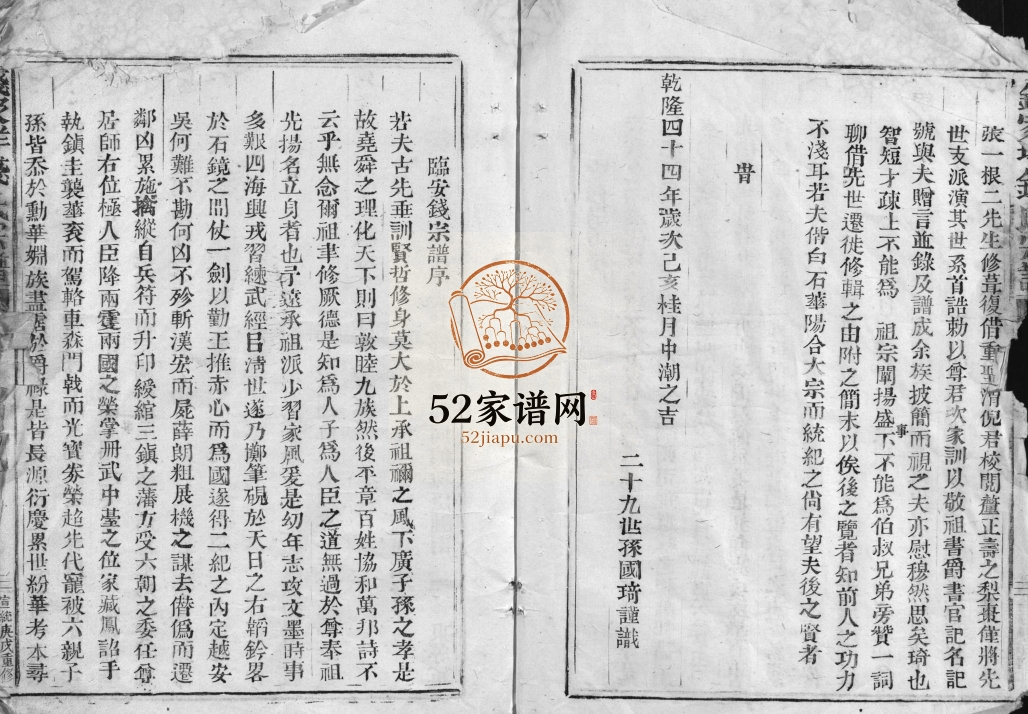 張一根二先生修葺復借重聖渭倪君校閱釐正壽之梨棗僅將先
世支派演其世系首誥勅以尊君次家訓以敬祖書爵書官記名記
號與夫贈言並錄及譜成余族披簡而視之夫亦慰穆然思矣琦也
智短才疎上不能為 祖宗闡揚盛事下不能為伯叔兄弟旁贊一詞
聊借先世遷徙修輯之由附之簡末以俟後之覽者知前人之功力
不淺耳若夫偕白石華陽合大宗而統紀之尚有望夫後之賢者
旹
乾隆四十四年歲次己亥桂月中潮之吉
二十九世孫國琦謹識
臨安錢宗譜序
若夫古先垂訓賢哲修身莫大於上承祖禰之風下廣子孫之孝是
故堯舜之理化天下則曰敦睦九族然後平章百姓協和萬邦詩不
云乎無念爾祖聿修厥德是知為人子為人臣之道無過於尊奉祖
先揚名立身者也予遠承祖派少習家風爰是幼年志攻文墨時事
多艱四海興戎習練武經目清世遂乃擲筆硯於天日之右韜鈐畧
於石鏡之間仗一劍以勤王推赤心而為國遂得二紀之內定越安
吳何難不勘何凶不殄斬漢宏而屍薛朗粗展機之謀去僭偽而遷
鄰凶累施擒縱自兵符而升印綬綰三鎮之藩方受六朝之委任尊
居師右位極人臣降兩霆兩國之榮掌冊武中臺之位家藏鳳詔手
執鎮圭襲華袞而駕輅車森門戟而光寶券榮超先代寵被六親子
孫皆忝於勳華婣族盡霑於爵祿是皆長源衍慶累世紛華考本尋
宣統庚戌重修
52家谱网
52jiapu.com